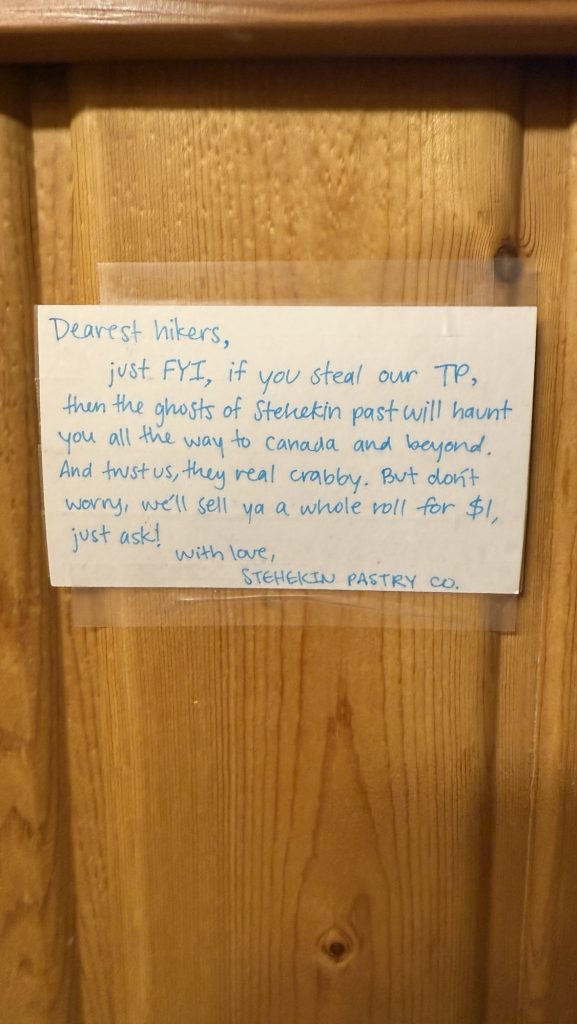 Dearest hikers,
just FYI, if you steal our TP,
then the ghosts of Stehekin past will haunt
you all the way to Canada and beyond.
And trust us, they real crabby. But don't
worry, we'll sell ya a whole roll for $1,
just ask!
with love,
STEHEKIN PASTRY CO.